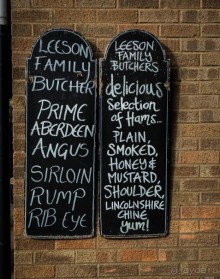 LEESON
FAMILY
BUTCHER
PRIME
ABERDEEN
ANGUS
SIRLOIN
RUMP
RIB EYE
LEESON
FAMILY
BUTCHERS
delicious
Selection
of Hams...
PLAIN,
SMOKED,
HONEY &
MUSTARD,
SHOULDER,
LINCOLNSHIRE
CHINE
Yum!